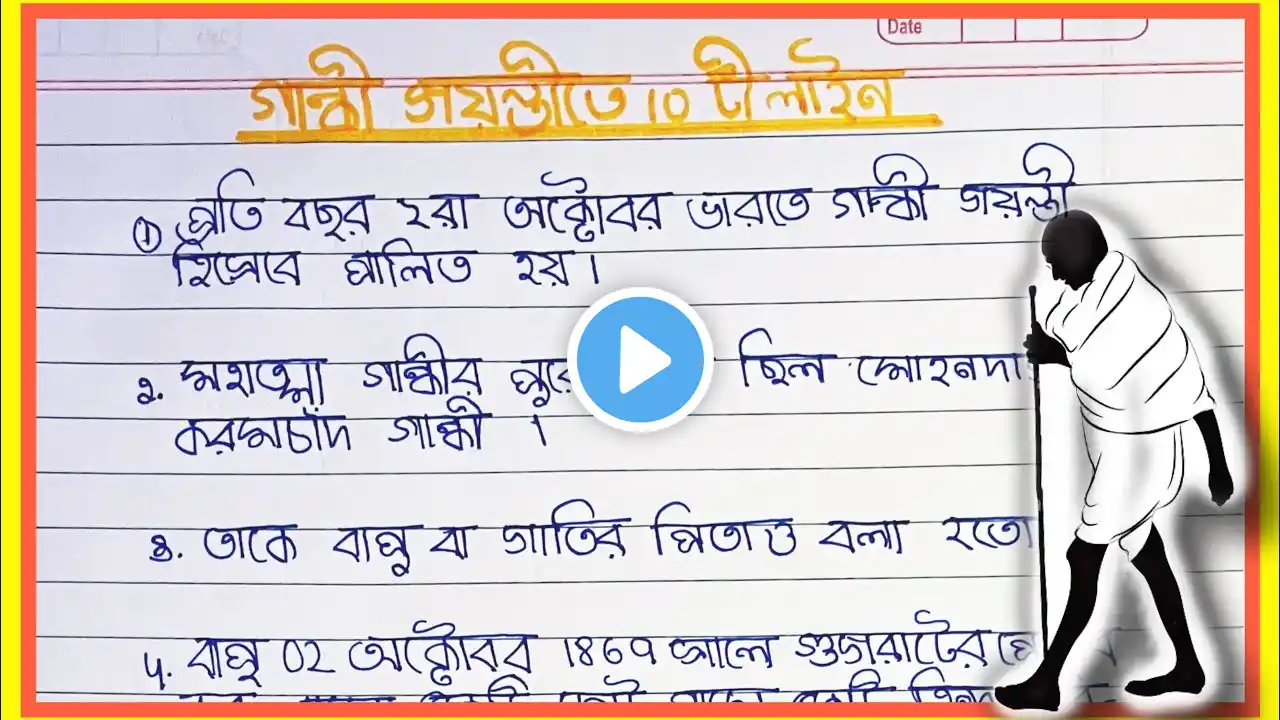 Date
গান্ধী জয়ন্তীতে 10 টী লাইন
① প্রতি বছর ২রা অক্টোবর ভারতে গান্ধী জয়ন্তী
হিসেবে পালিত হয়।
২. মহাত্মা গান্ধীর ছিল
করমচাঁদ গান্ধী ।
৩. তাকে বাপু বা জাতির পিতাও বলা হতো
৪. বাপু 02 অক্টোবর 1869 সালে গুজরাটের